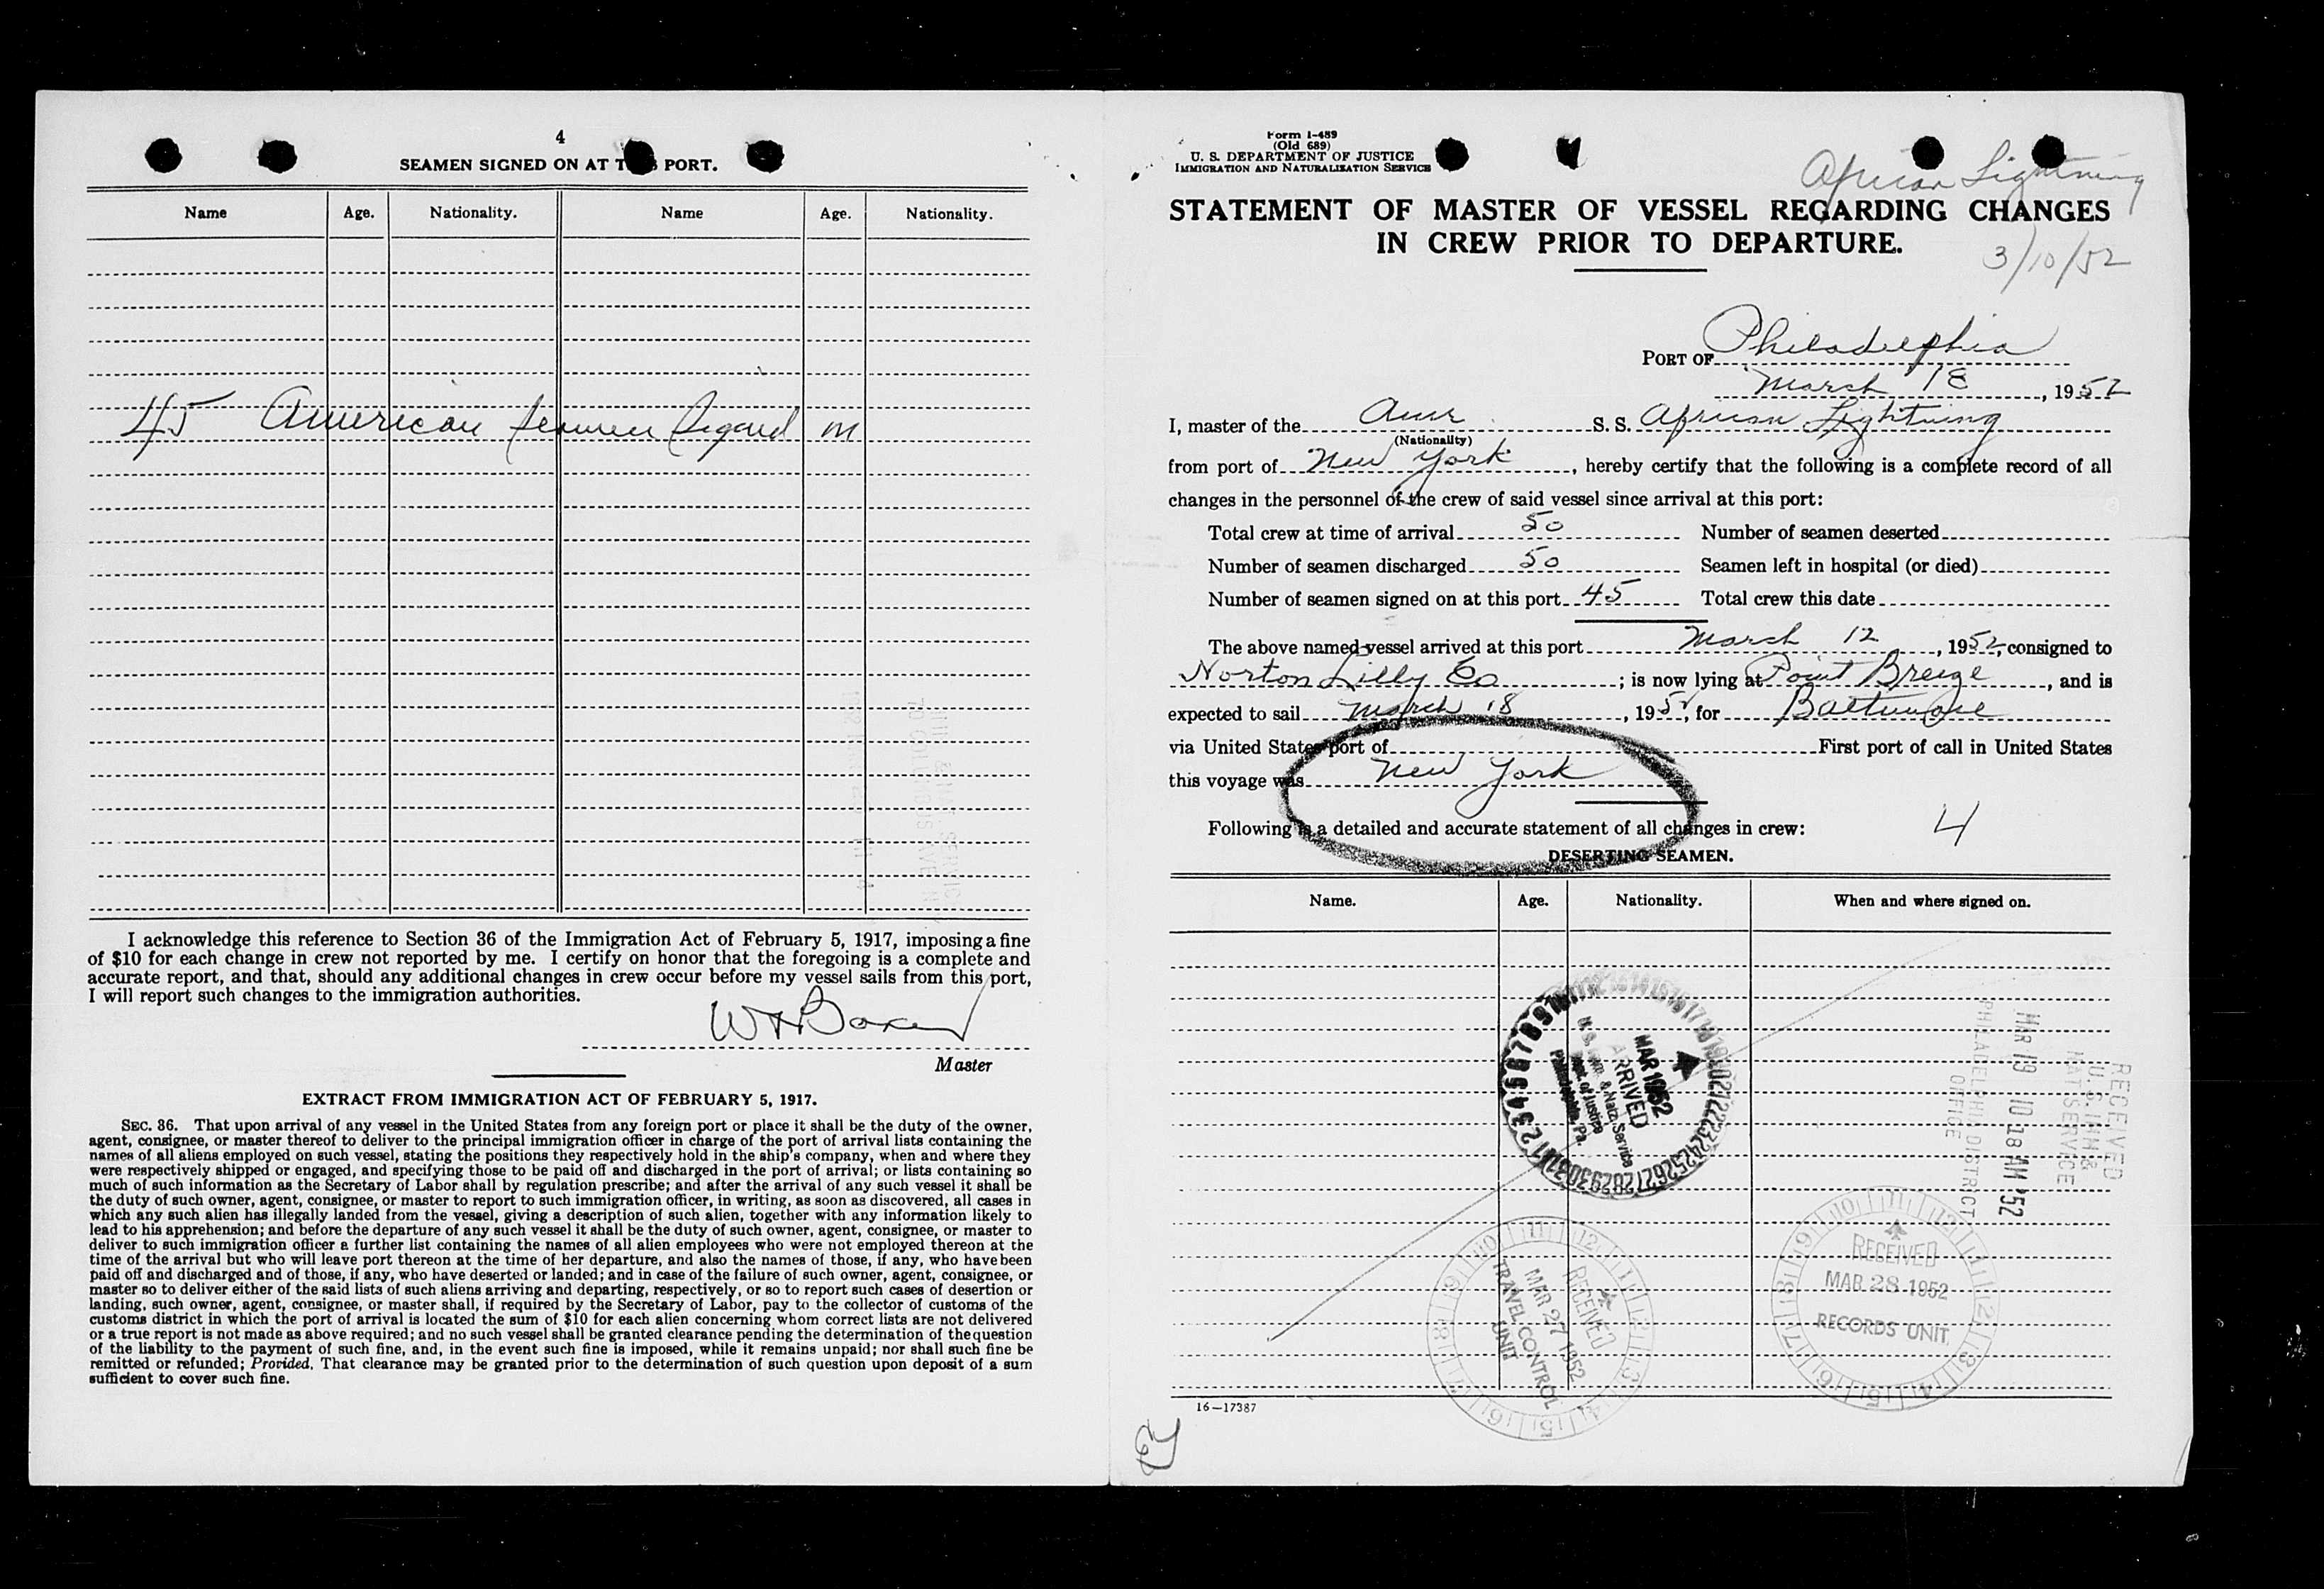 4
SEAMEN SIGNED ON AT T S PORT.
Name Age. Nationality. Name Age. Nationality.
45 American Seamen Signed on
I acknowledge this reference to Section 36 of the Immigration Act of February 5, 1917, imposing a fine
of $10 for each change in crew not reported by me. I certify on honor that the foregoing is a complete and
accurate report, and that, should any additional changes in crew occur before my vessel sails from this port,
I will report such changes to the immigration authorities.
Master
EXTRACT FROM IMMIGRATION ACT OF FEBRUARY 5, 1917.
SEC. 36. That upon arrival of any vessel in the United States from any foreign port or place it shall be the duty of the owner,
agent, consignee, or master thereof to deliver to the principal immigration officer in charge of the port of arrival lists containing the
names of all aliens employed on such vessel, stating the positions they respectively hold in the ship's company, when and where they
were respectively shipped or engaged, and specifying those to be paid off and discharged in the port of arrival; or lists containing so
much of such information as the Secretary of Labor shall by regulation prescribe; and after the arrival of any such vessel it shall be
the duty of such owner, agent, consignee, or master to report to such immigration officer, in writing, as soon as discovered, all cases in
which any such alien has illegally landed from the vessel, giving a description of such alien, together with any information likely to
lead to his apprehension; and before the departure of any such vessel it shall be the duty of such owner, agent, consignee, or master to
deliver to such immigration officer a further list containing the names of all alien employees who were not employed thereon at the
time of the arrival but who will leave port thereon at the time of her departure, and also the names of those, if any, who have been
paid off and discharged and of those, if any, who have deserted or landed; and in case of the failure of such owner, agent, consignee, or
master so to deliver either of the said lists of such aliens arriving and departing, respectively, or so to report such cases of desertion or
landing, such owner, agent, consignee, or master shall, if required by the Secretary of Labor, pay to the collector of customs of the
customs district in which the port of arrival is located the sum of $10 for each alien concerning whom correct lists are not delivered
or a true report is not made as above required; and no such vessel shall be granted clearance pending the determination of the question
of the liability to the payment of such fine, and, in the event such fine is imposed, while it remains unpaid; nor shall such fine be
remitted or refunded; Provided, That clearance may be granted prior to the determination of such question upon deposit of a sum
sufficient to cover such fine.
Form I-489
(Old 689)
U. S. DEPARTMENT OF JUSTICE
IMMIGRATION AND NATURALIZATION SERVICE
African Lightning
STATEMENT OF MASTER OF VESSEL REGARDING CHANGES
IN CREW PRIOR TO DEPARTURE.
3/10/52
PORT OF Philadelphia
March 18, 1952
I, master of the Amr S. S. African Lightning
(Nationality)
from port of New York, hereby certify that the following is a complete record of all
changes in the personnel of the crew of said vessel since arrival at this port:
Total crew at time of arrival 50 Number of seamen deserted
Number of seamen discharged 50 Seamen left in hospital (or died)
Number of seamen signed on at this port 45 Total crew this date
The above named vessel arrived at this port March 12, 1952, consigned to
Norton Lilly Co; is now lying at Point Breeze, and is
expected to sail March 18, 195, for Baltimore
via United States port of First port of call in United States
this voyage was New York
Following is a detailed and accurate statement of all changes in crew:
4
DESERTING SEAMEN.
Name. Age. Nationality. When and where signed on.
MAR 1952
ARRIVED
U. S. Imm. & Natz. Service
Dept. of Justice
Philadelphia, Pa.
RECEIVED
U. S. IMM &
NAT SERVICE
MAR 19 10 18 AM '52
PHILADELPHIA DISTRICT
OFFICE
RECEIVED
MAR 27 1952
TRAVEL CONTROL
UNIT
RECEIVED
MAR 28 1952
RECORDS UNIT
16—17387